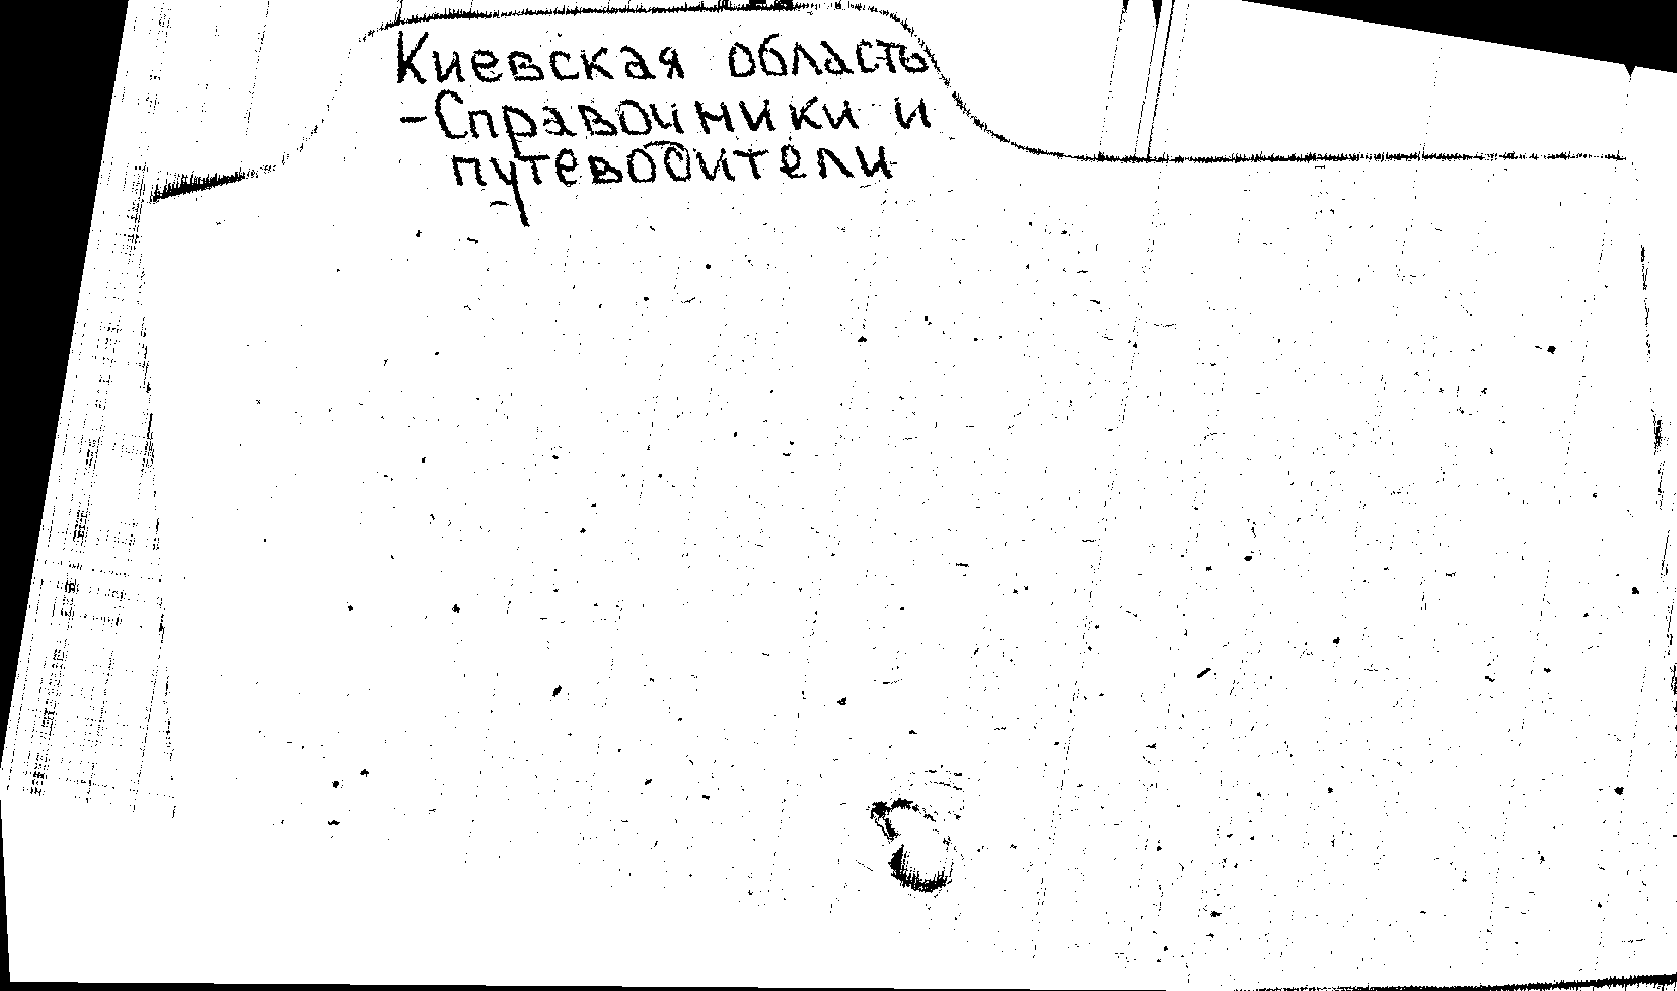 Киевская область
-Справочники и
путеводители